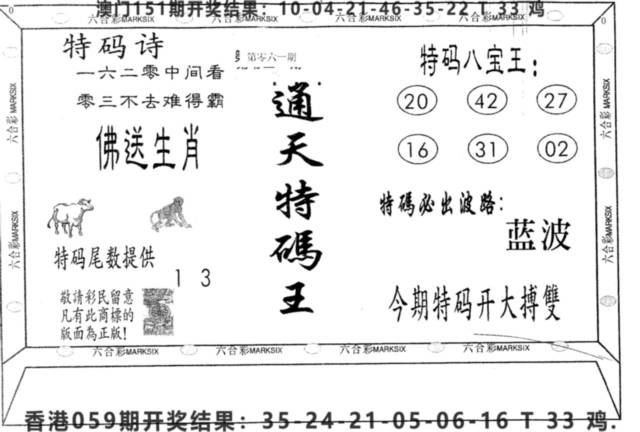 澳门151期开奖结果：10-04-21-46-35-22 T 33 鸡
六合彩MARKSIX 六合彩MARKSIX 六合彩MARKSIX 六合彩MARKSIX
特码诗
一六二零中间看
零三不去难得霸
佛送生肖
特码尾数提供
1 3
敬請彩民留意
凡有此商標的
版面為正版!
第零六一期
通天特碼王
特码八宝王:
20 42 27
16 31 02
特碼必出波路:
蓝波
今期特码开大搏雙
六合彩MARKSIX
六合彩MARKSIX
六合彩MARKSIX
六合彩MARKSIX
六合彩MARKSIX 六合彩MARKSIX 六合彩MARKSIX 六合彩MARKSIX
香港059期开奖结果：35-24-21-05-06-16 T 33 鸡.